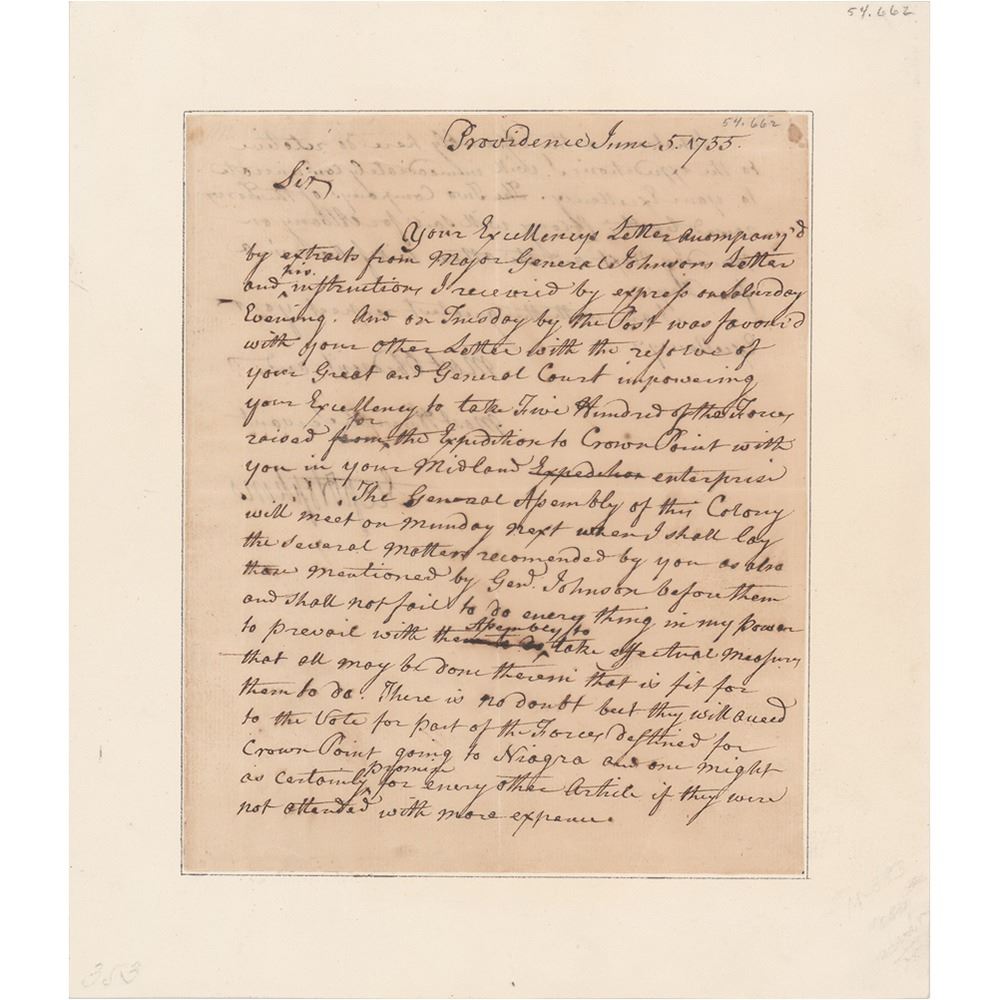 54.662
54.662
Providence June 5. 1755.
Sir,
Your Excellencys Letter accompany'd
by extracts from Major General Johnsons Letter
his
and instructions I received by express on Saturday
Evening. And on Tuesday by the Post was favour'd
with your other Letter with the resolve of
your Great and General Court impowering
your Excellency to take Five Hundred of the Forces
for
raised from the Expedition to Crown Point with
you in your Midland Expedition enterprise
The General Assembly of this Colony
will meet on Munday next when I shall lay
the several matters recomended by you as also
those mentioned by Genl. Johnson before them
and shall not fail to do every thing in my power
Assembly to
to prevail with them to take effectual Measures
that all may be done therein that is fit for
them to do. There is no doubt but they will acceed
to the Vote for part of the Forces destined for
Crown Point going to Niagra and one might
promise
as certainly for every other Article if they were
not attended with more expence.
353